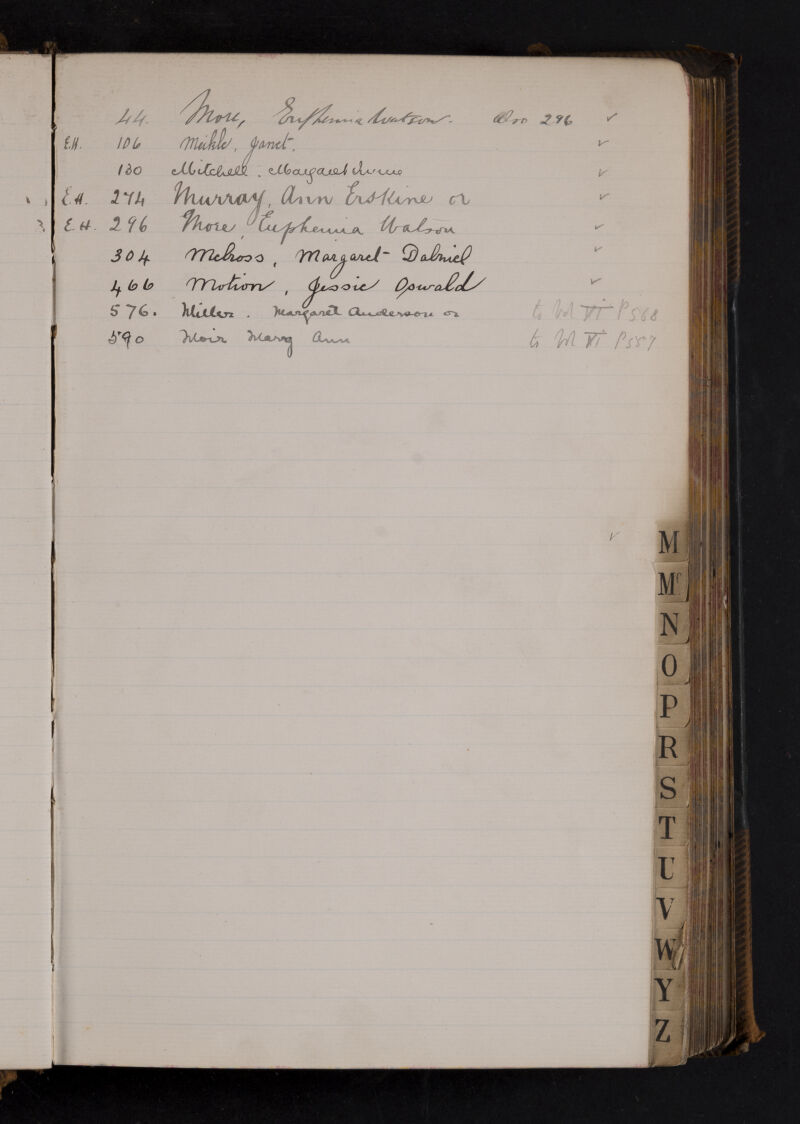 44. More, Euphemia Watson. Also 296 ✓
E.H. 106 Meikle, Janet. ✓
130 Mitchell, Margaret Irvine ✓
E.H. 274 Murray, Ann Erskine or
E.H. 296 More, Euphemia Watson ✓
304 Melross, Margaret Dalziel ✓
466 Motion, Jessie Oswald ✓
576. Miller. Margaret Anderson or to Vol VI P568
590 Moir Mary Ann to Vol VI P557
✓
M
Mc
N
O
P
R
S
T
U
V
W
Y
Z